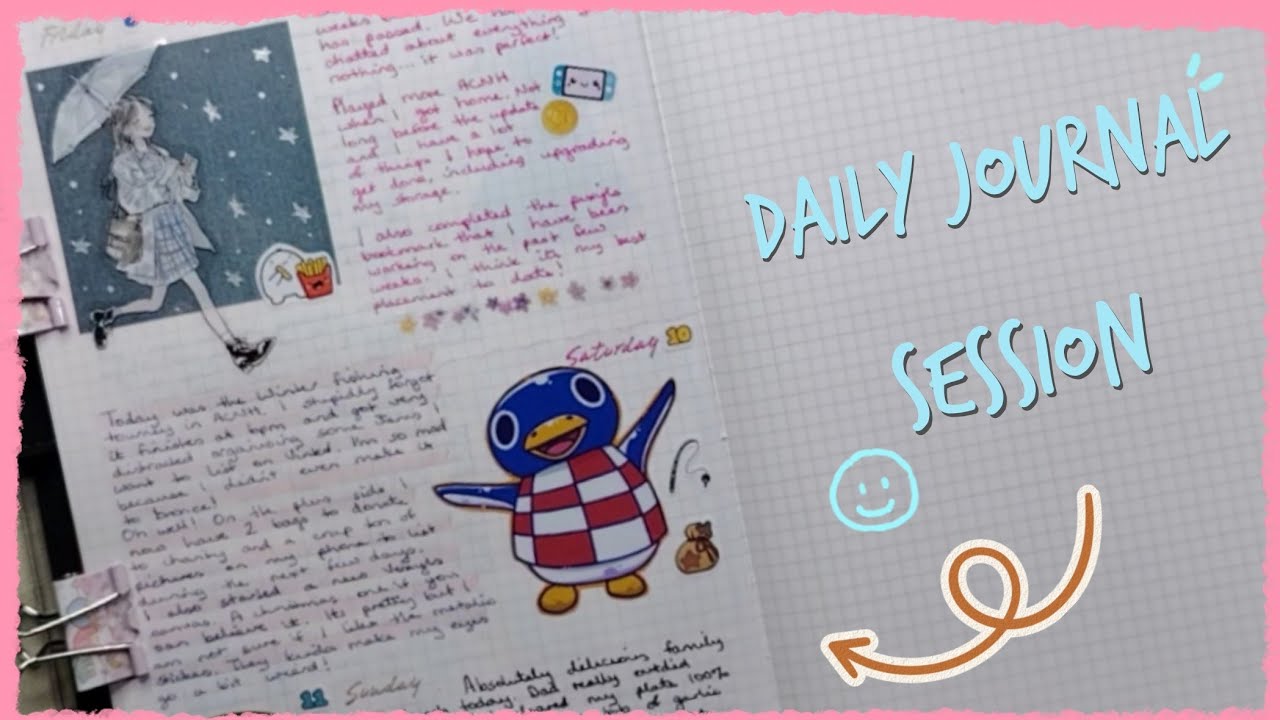 Friday
weeks
has passed. We ha
chatted about everything &
nothing... it was perfect!
Played more ACNH
when I got home. Not
long before the update
and I have a lot
of things I hope to
get done, including upgrading
my storage.
I also completed the
bookmark that I have been
working on the past few
weeks. I think it's my best
placement to date!
Saturday 10
Today was the Winter fishing
tourney in ACNH. I stupidly forgot
it finishes at 6pm and got very
distracted organising some items I
want to list on Vinted. I'm so mad
because I didn't even make it
to bronze!
Oh well! On the plus side I
now have 2 bags to donate
to charity and a crap ton of
pictures on my phone to list
during the next few days.
I also started a new
canvas. A christmas one if you
can believe it. Its pretty but I
am not sure if I like the metalic
stickes. They kinda make my eyes
go a bit weird!
11 Sunday
Absolutely delicious family
today. Dad really
my plate 100%
of garlic
DAILY JOURNAL
SESSION